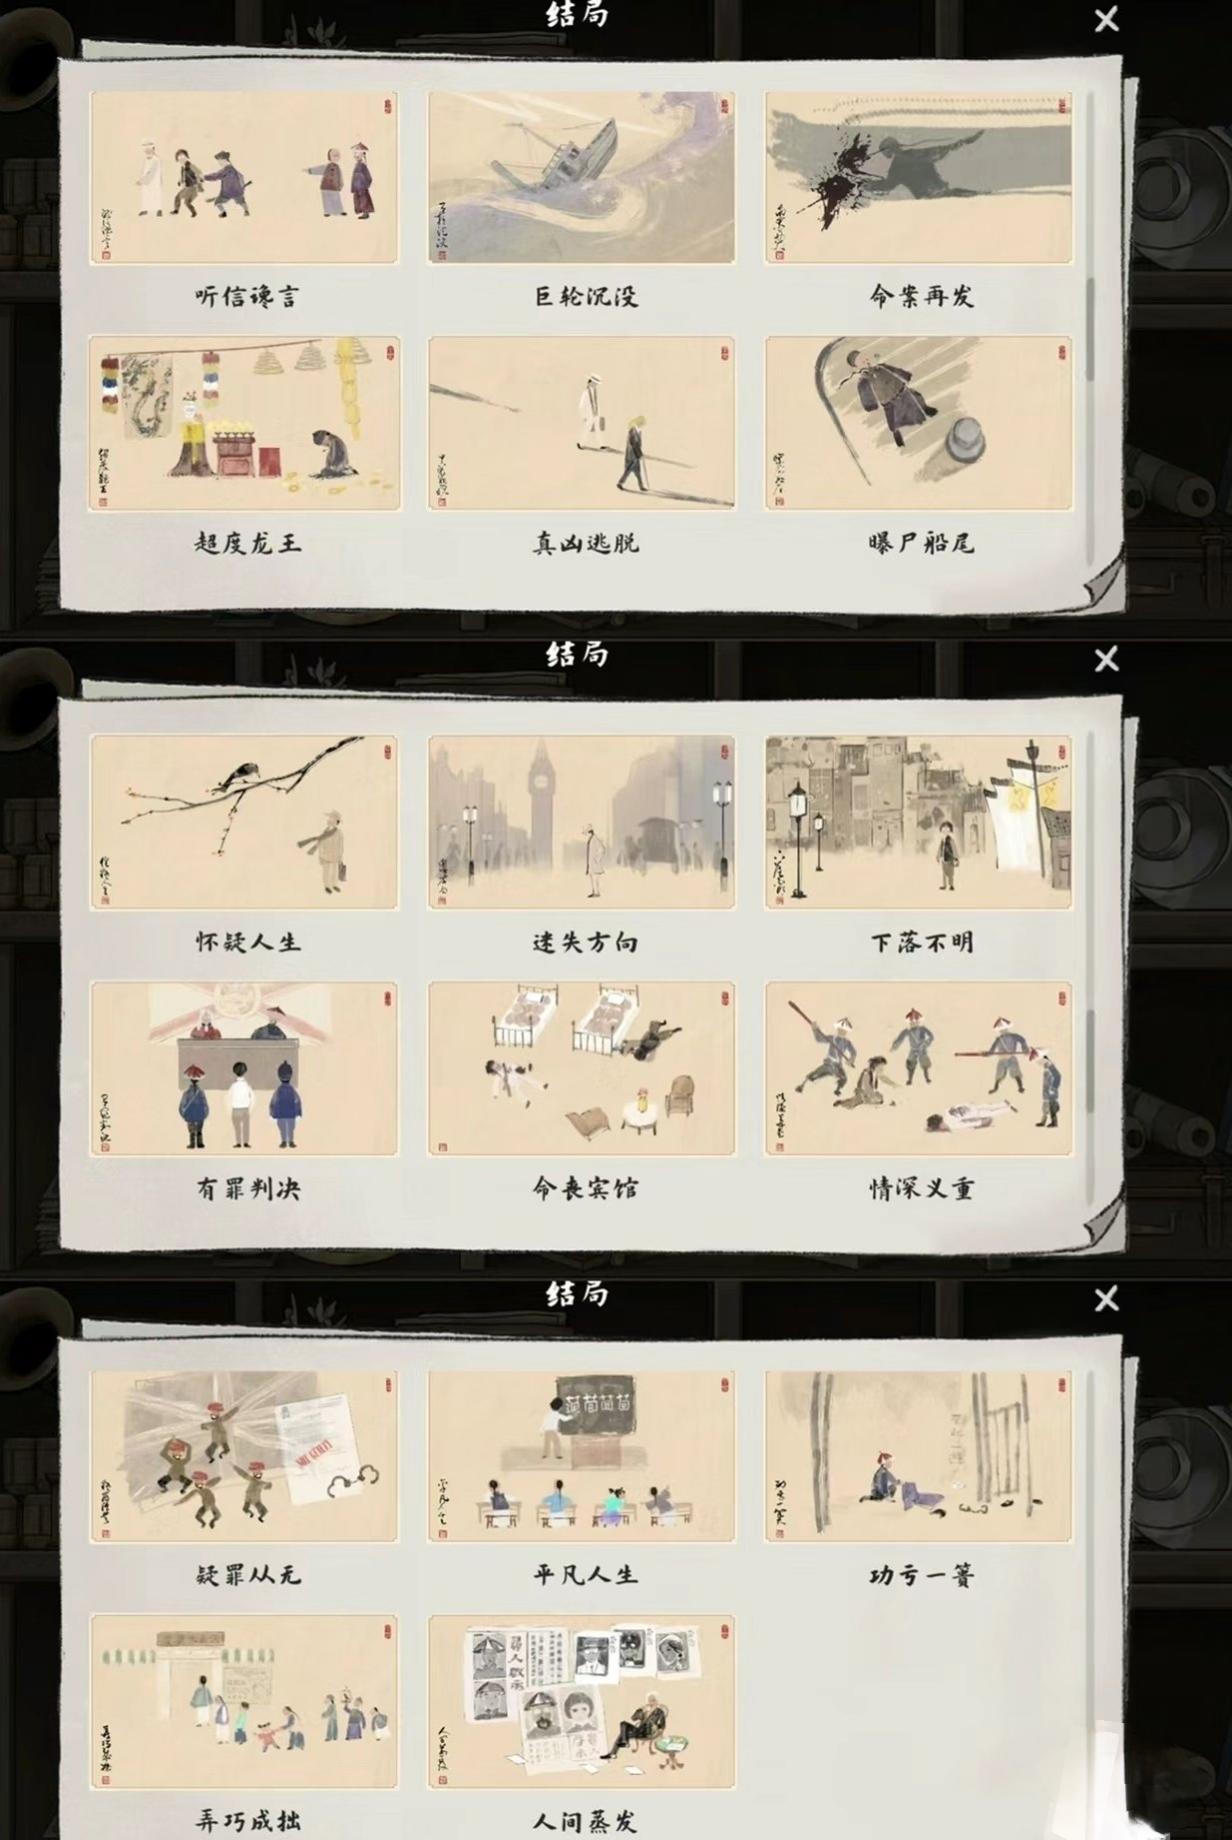 结局
听信谗言
巨轮沉没
命案再发
超度龙王
真凶逃脱
曝尸船尾
结局
怀疑人生
迷失方向
下落不明
有罪判决
命丧宾馆
情深义重
结局
NOT GUILTY
茴茴茴茴
疑罪从无
平凡人生
功亏一篑
弄巧成拙
人间蒸发